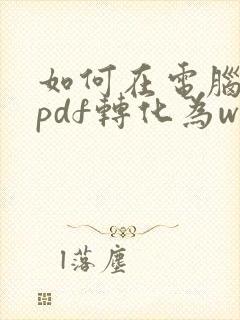 如何在電腦
pdf轉化為w
l落塵